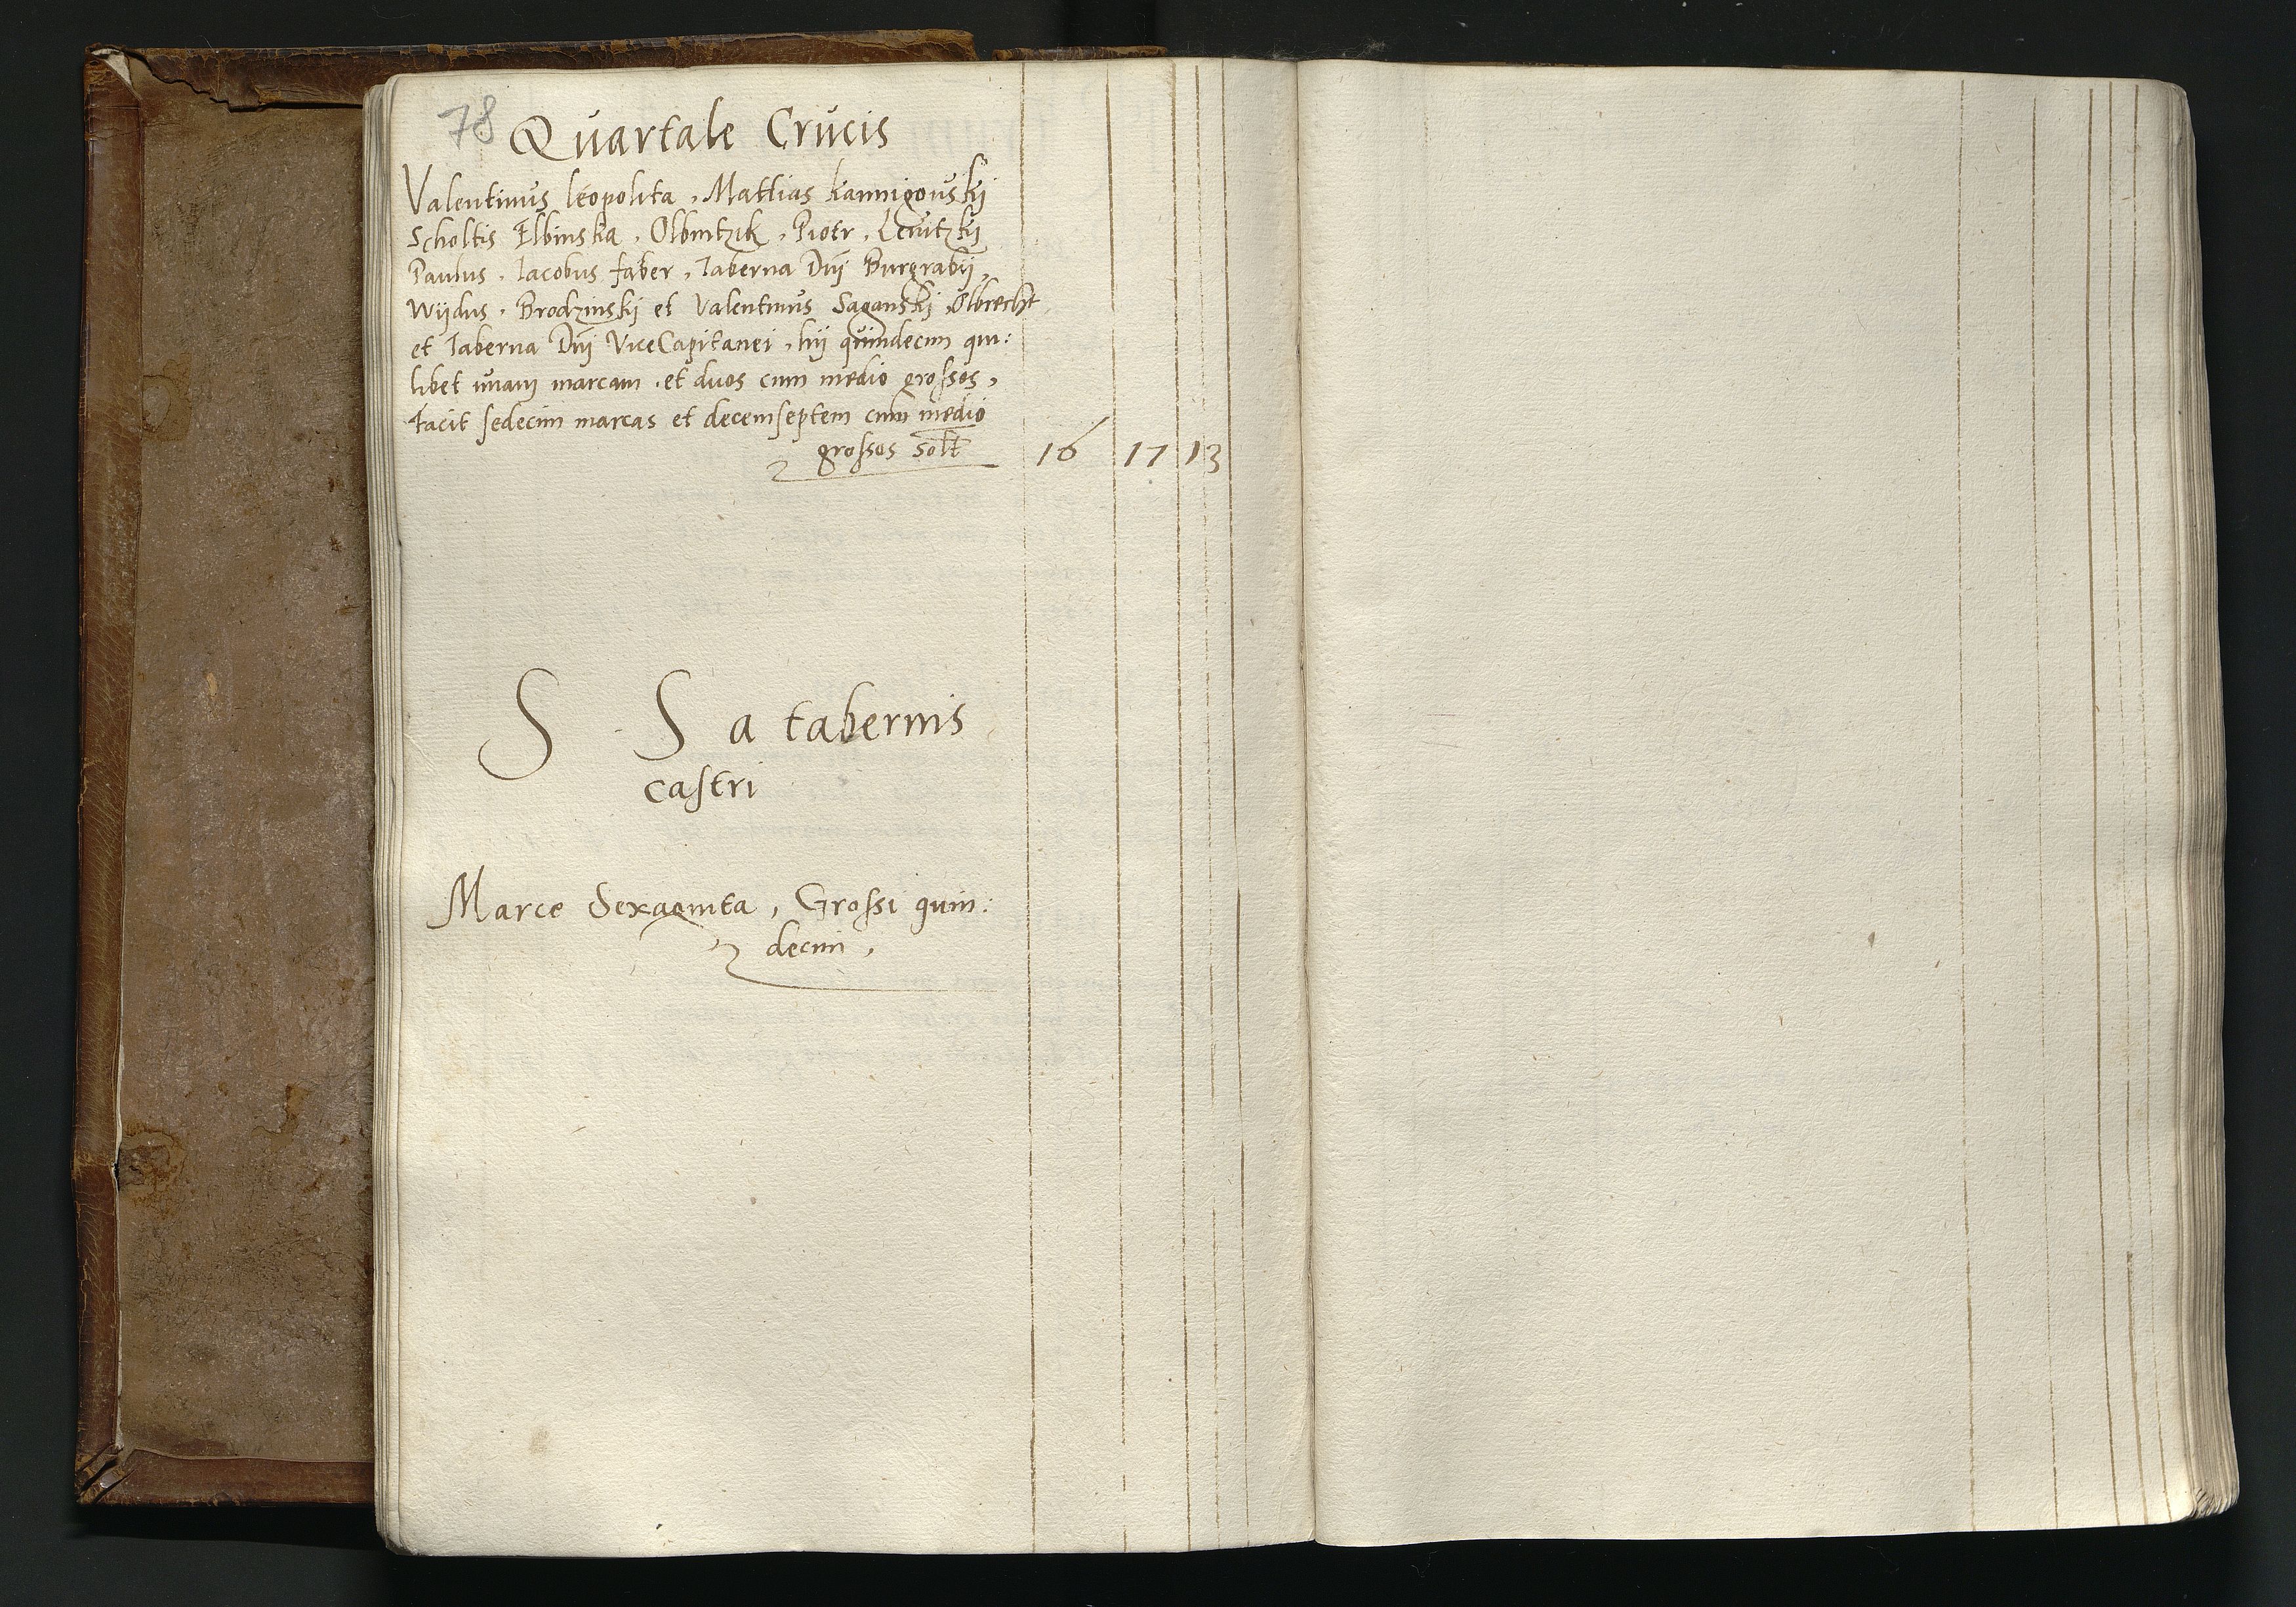 78 Quartale Crucis
Valentinus leopolita, Mattias kannigouskij
Scholtis Elbinska, Olbintzik, Piotr, Lewitzkij
Paulus, Iacobus faber, Taberna Dnj Burgrabij,
Wijdus, Brodzinskij et Valentinus Saganskij Olbrecht
et Taberna Dnj ViceCapitanei, hij quindecim qui:
libet unam marcam et duos cum medio grossos,
facit sedecim marcas et decemseptem cum medio
grossos solt 16 17 13
S S a tabernis
castri
Marce Sexaginta, Grossi quin:
decim,